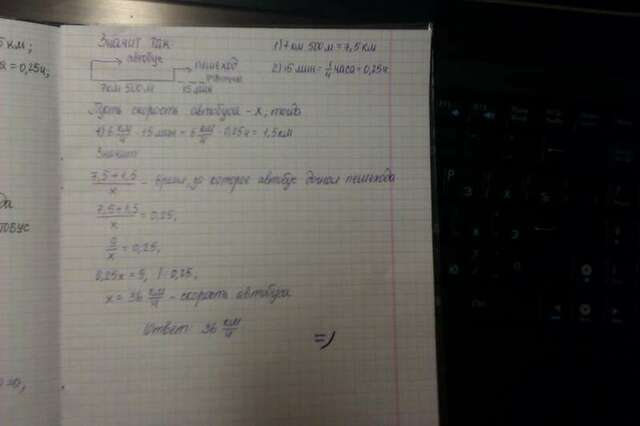 Значит так:
автобус
пешеход
7км 500м 15 мин
1) 7км 500м = 7,5 км
2) 15 мин = 1/4 часа = 0,25ч
Пусть скорость автобуса - х, тогда
1) 6 км/ч · 15 мин = 6 км/ч · 0,25ч = 1,5км
Значит
7,5+1,5/х - время, за которое автобус догнал пешехода
7,5+1,5/х = 0,25,
9/х = 0,25,
0,25х = 9, |: 0,25,
х = 36 км/ч - скорость автобуса
Ответ: 36 км/ч
=)
5 км;
= 0,25ч,